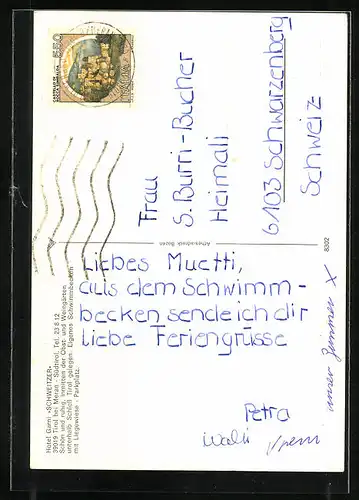 Frau
S. Burri-Bucher
Heimali
6103 Schwarzenberg
Schweiz
Liebes Muetti,
aus dem Schwimm-
becken sende ich dir
liebe Feriengrüsse
Petra
Walti
unser Zimmer X
Hotel Garni «SCHWEITZER»
39019 Tirol bei Meran - Südtirol, Tel. 23 8 12
Schön und ruhig, inmitten der Obst- und Weingärten
unterhalb Schloß Tirol gelegen. Eigenes Schwimmbecken
mit Liegewiese - Parkplatz.
8302